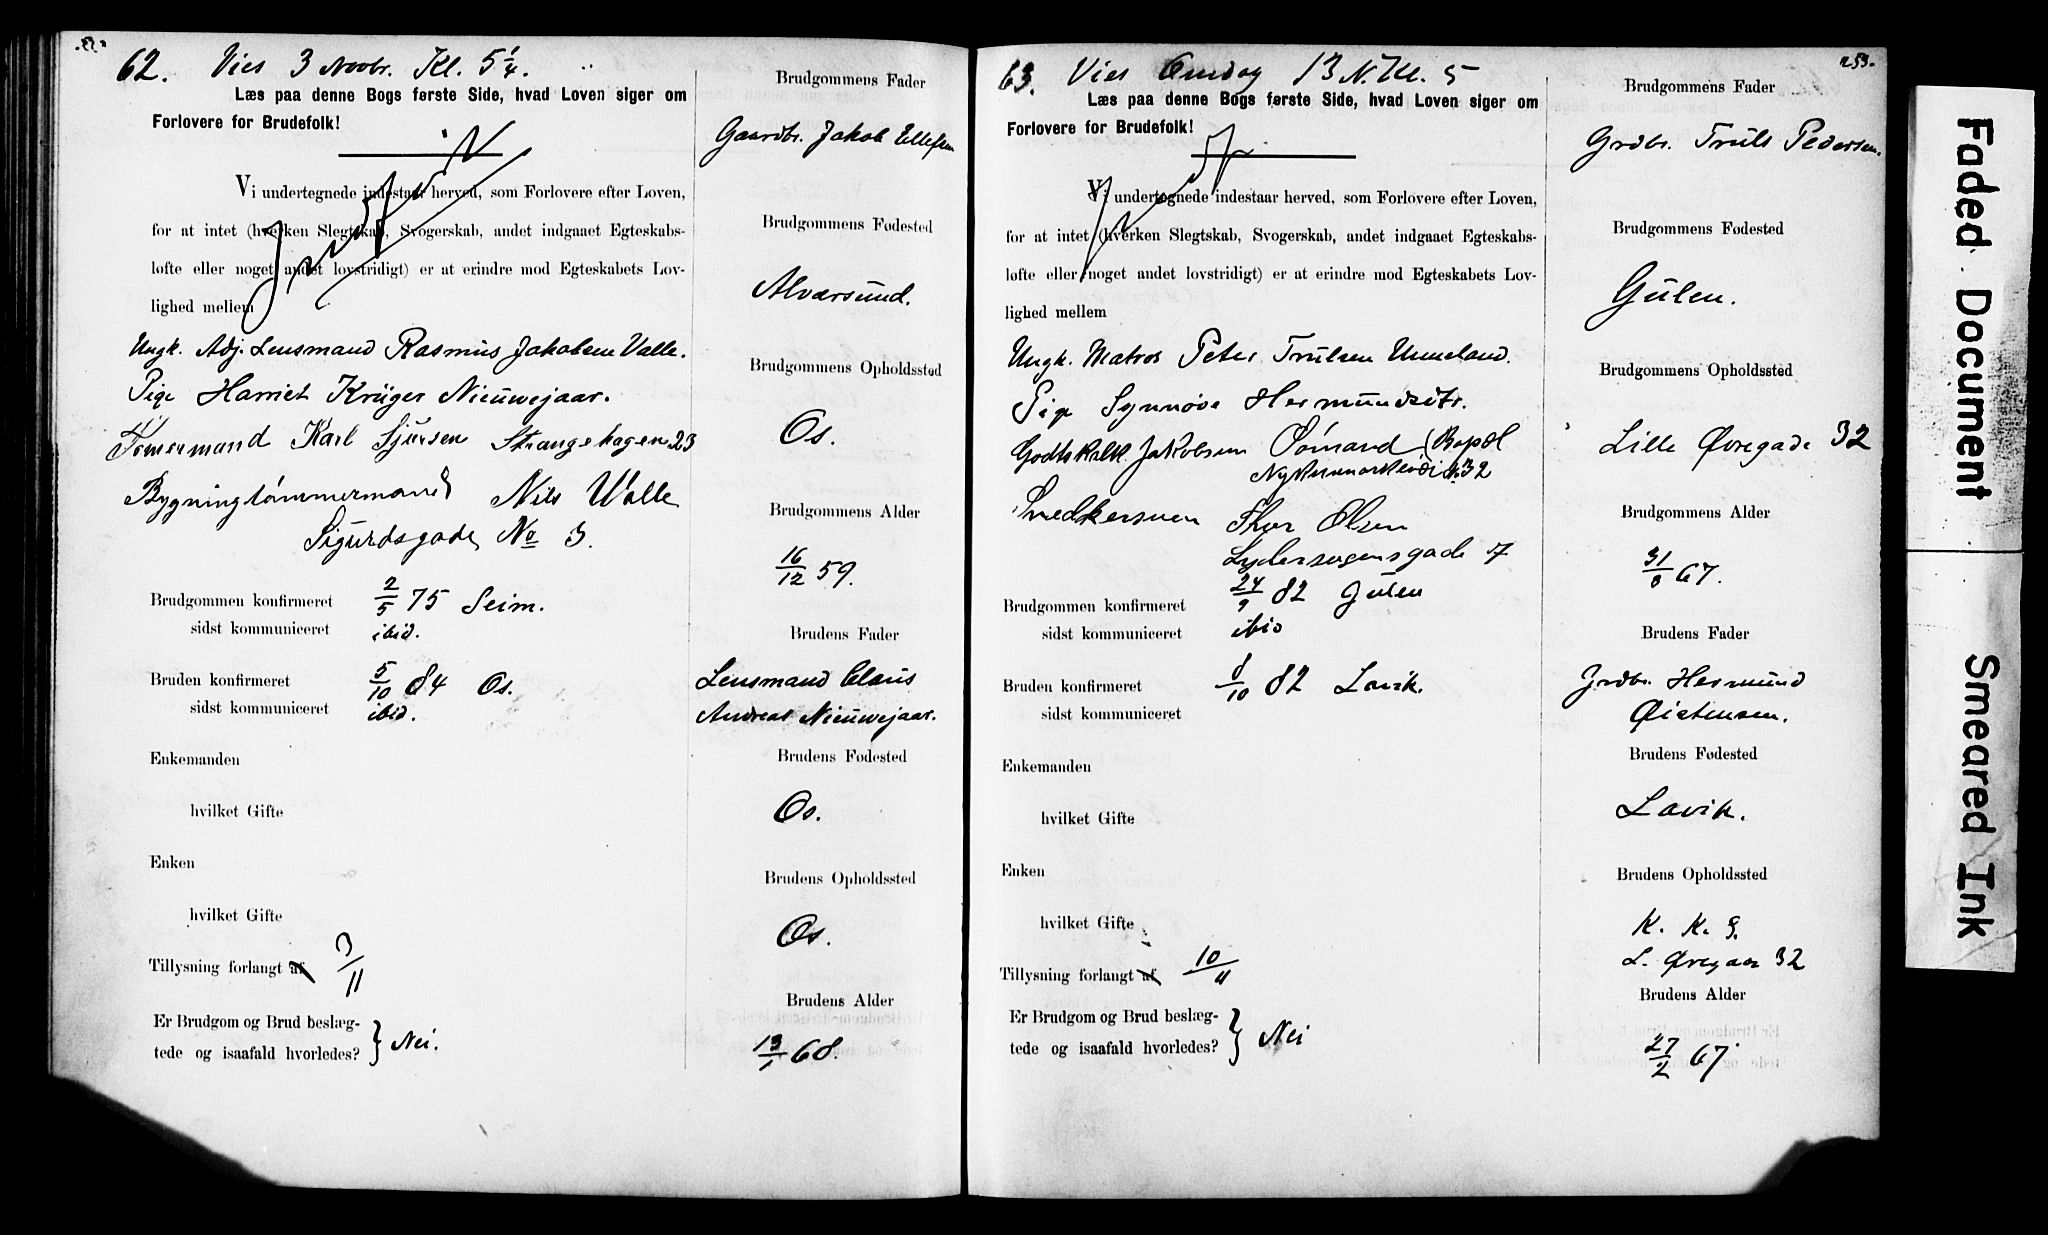 62. Vies 3 Novbr. Kl. 5 1/4.
Læs paa denne Bogs første Side, hvad Loven siger om
Forlovere for Brudefolk!
Vi undertegnede indestaar herved, som Forlovere efter Loven,
for at intet (hverken Slegtskab, Svogerskab, andet indgaaet Egteskabs-
løfte eller noget andet lovstridigt) er at erindre mod Egteskabets Lov-
lighed mellem
Ungk. Adj. Lensmand Rasmus Jakobsen Valle.
Pige Harriet Krüger Nieuwejaar.
Tømermand Karl Sjursen Strangehagen 23
Bygningtømmermand Nils Walle
Sigurdsgade No 3.
Brudgommen konfirmeret 2/5 75 Seim.
sidst kommuniceret ibid.
Bruden konfirmeret 5/10 84 Os.
sidst kommuniceret ibid.
Enkemanden
hvilket Gifte
Enken
hvilket Gifte
Tillysning forlangt af 3/11
Er Brudgom og Brud beslæg-
tede og isaafald hvorledes? } Nei.
Brudgommens Fader
Gaardbr. Jakob Ellefsen
Brudgommens Fødested
Alværsund.
Brudgommens Opholdssted
Os.
Brudgommens Alder
16/12 59.
Brudens Fader
Lensmand Claus
Andreas Nieuwejaar.
Brudens Fødested
Os.
Brudens Opholdssted
Os.
Brudens Alder
13/1 68.
253.
63. Vies Onsdag 13 N. Kl. 5
Læs paa denne Bogs første Side, hvad Loven siger om
Forlovere for Brudefolk!
Vi undertegnede indestaar herved, som Forlovere efter Loven,
for at intet (hverken Slegtskab, Svogerskab, andet indgaaet Egteskabs-
løfte eller noget andet lovstridigt) er at erindre mod Egteskabets Lov-
lighed mellem
Ungk. Matros Peter Trulsen Unneland.
Pige Synnøve Hermundsdtr.
Godtskalk Jakobsen
32
Snedkersven Thor Olsen
Lydersagensgade 7
Brudgommen konfirmeret 24/9 82 Gulen
sidst kommuniceret ibid
Bruden konfirmeret 8/10 82 Lavik.
sidst kommuniceret
Enkemanden
hvilket Gifte
Enken
hvilket Gifte
Tillysning forlangt af 10/11
Er Brudgom og Brud beslæg-
tede og isaafald hvorledes? } Nei
Brudgommens Fader
Grdbr. Truls Pedersen.
Brudgommens Fødested
Gulen.
Brudgommens Opholdssted
Lille Øvregade 32
Brudgommens Alder
31/8 67.
Brudens Fader
Grdbr. Hermund
Øistensen.
Brudens Fødested
Lavik.
Brudens Opholdssted
K. K. S.
L. Øvregade 32
Brudens Alder
27/2 67
Faded Document
Smeared Ink